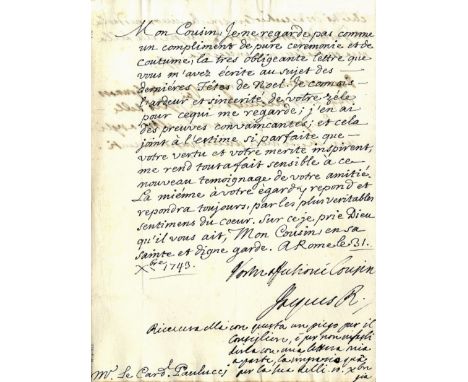 Mon Cousin, Je ne regarde pas comme
un compliment de pure ceremonie et de
coutume, la tres obligeante lettre que
vous m'avez écrite au sujet des
dernieres Fêtes de Noel. Je connois
l'ardeur et sincerité de votre zéle
pour ce qui me regarde; j'en ai
des preuves convaincantes; et cela
joint à l'estime si parfaite que
votre vertu et votre merite inspirent,
me rend tout a fait sensible à ce
nouveau temoignage de votre amitié.
La miéme à votre égard y repond et
repondra toujours, par les plus veritables
sentimens du coeur. Sur ce je prie Dieu
qu'il vous ait, Mon Cousin en sa
sainte et digne garde. A Rome le 31.
Xbre 1743.
Votre Cousin
Jacques R.
con questa un piego per il
Consigliere, è per non
una lettera mia
a parte,
per la sua delli
Mr. Le Card.l Paulucci